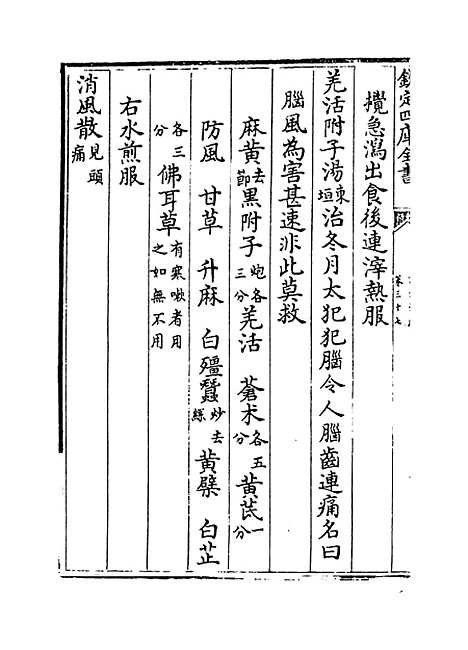 欽定四庫全書
卷三十七
攪急瀉出食後連滓熱服
羌活附子湯東垣治冬月太犯犯腦令人腦齒連痛名曰
腦風為害甚速非此莫救
麻黃去節黑附子炮各三分羌活 蒼朮各五分黃芪一分
防風 甘草 升麻 白殭蠶炒去絲 黃蘗 白芷
各三分佛耳草有寒嗽者用之如無不用
右水煎服
消風散見頭痛